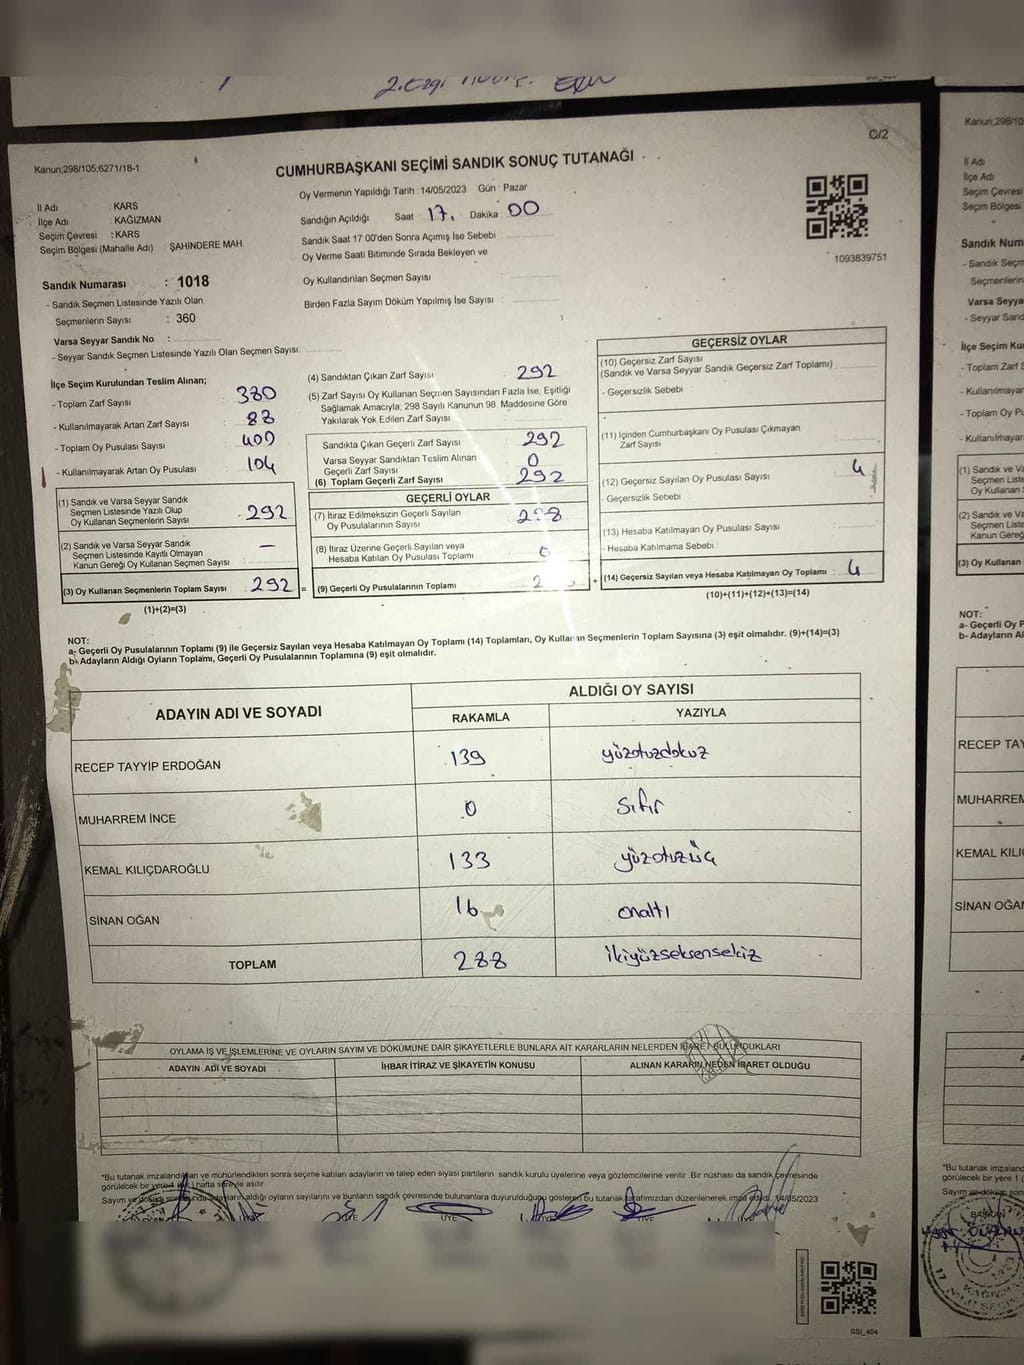 C/2
Kanun;298/105;6271/18-1
CUMHURBAŞKANI SEÇİMİ SANDIK SONUÇ TUTANAĞI
İl Adı : KARS
İlçe Adı : KAĞIZMAN
Seçim Çevresi : KARS
Seçim Bölgesi (Mahalle Adı) : ŞAHİNDERE MAH
Oy Vermenin Yapıldığı Tarih : 14/05/2023 Gün : Pazar
Sandığın Açıldığı Saat 17. Dakika : 00
Sandık Saat 17 00'den Sonra Açımış İse Sebebi
Oy Verme Saati Bitiminde Sırada Bekleyen ve
Oy Kullandırılan Seçmen Sayısı
Birden Fazla Sayım Döküm Yapılmış İse Sayısı
1093839751
Sandık Numarası : 1018
- Sandık Seçmen Listesinde Yazılı Olan
Seçmenlerin Sayısı : 360
Varsa Seyyar Sandık No :
- Seyyar Sandık Seçmen Listesinde Yazılı Olan Seçmen Sayısı:
İlçe Seçim Kurulundan Teslim Alınan;
- Toplam Zarf Sayısı 380
- Kullanılmayarak Artan Zarf Sayısı 88
- Toplam Oy Pusulası Sayısı 400
- Kullanılmayarak Artan Oy Pusulası 104
(1) Sandık ve Varsa Seyyar Sandık
Seçmen Listesinde Yazılı Olup
Oy Kullanan Seçmenlerin Sayısı 292
(2) Sandık ve Varsa Seyyar Sandık
Seçmen Listesinde Kayıtlı Olmayan
Kanun Gereği Oy Kullanan Seçmen Sayısı —
(3) Oy Kullanan Seçmenlerin Toplam Sayısı 292 =
(1)+(2)=(3)
(4) Sandıktan Çıkan Zarf Sayısı 292
(5) Zarf Sayısı Oy Kullanan Seçmen Sayısından Fazla İse, Eşitliği
Sağlamak Amacıyla; 298 Sayılı Kanunun 98. Maddesine Göre
Yakılarak Yok Edilen Zarf Sayısı
Sandıkta Çıkan Geçerli Zarf Sayısı 292
Varsa Seyyar Sandıktan Teslim Alınan
Geçerli Zarf Sayısı 0
(6) Toplam Geçerli Zarf Sayısı 292
GEÇERLİ OYLAR
(7) İtiraz Edilmeksizin Geçerli Sayılan
Oy Pusulalarının Sayısı 288
(8) İtiraz Üzerine Geçerli Sayılan veya
Hesaba Katılan Oy Pusulası Toplamı 0
(9) Geçerli Oy Pusulalarının Toplamı 2 +
GEÇERSİZ OYLAR
(10) Geçersiz Zarf Sayısı
(Sandık ve Varsa Seyyar Sandık Geçersiz Zarf Toplamı)
- Geçersizlik Sebebi
(11) İçinden Cumhurbaşkanı Oy Pusulası Çıkmayan
Zarf Sayısı
(12) Geçersiz Sayılan Oy Pusulası Sayısı 4
- Geçersizlik Sebebi
(13) Hesaba Katılmayan Oy Pusulası Sayısı
- Hesaba Katılmama Sebebi
(14) Geçersiz Sayılan veya Hesaba Katılmayan Oy Toplamı 4
(10)+(11)+(12)+(13)=(14)
NOT:
a- Geçerli Oy Pusulalarının Toplamı (9) ile Geçersiz Sayılan veya Hesaba Katılmayan Oy Toplamı (14) Toplamları, Oy Kullanan Seçmenlerin Toplam Sayısına (3) eşit olmalıdır. (9)+(14)=(3)
b- Adayların Aldığı Oyların Toplamı, Geçerli Oy Pusulalarının Toplamına (9) eşit olmalıdır.
ADAYIN ADI VE SOYADI
ALDIĞI OY SAYISI
RAKAMLA YAZIYLA
RECEP TAYYİP ERDOĞAN 139 yüzotuzdokuz
MUHARREM İNCE 0 sıfır
KEMAL KILIÇDAROĞLU 133 yüzotuzüç
SİNAN OĞAN 16 onaltı
TOPLAM 288 ikiyüzseksensekiz
OYLAMA İŞ VE İŞLEMLERİNE VE OYLARIN SAYIM VE DÖKÜMÜNE DAİR ŞİKAYETLERLE BUNLARA AİT KARARLARIN NELERDEN İBARET BULUNDUKLARI
ADAYIN ADI VE SOYADI İHBAR İTİRAZ VE ŞİKAYETİN KONUSU ALINAN KARARIN NEDEN İBARET OLDUĞU
*Bu tutanak imzalandıktan ve mühürlendikten sonra seçime katılan adayların ve talep eden siyasi partilerin sandık kurulu üyelerine veya gözlemcilerine verilir. Bir nüshası da sandık çevresinde
görülecek bir yere 1 (bir) hafta süreyle asılır
14/05/2023
ÜYE ÜYE ÜYE
SSI_404
Kanun;298/10
İl Adı
İlçe Adı
Seçim Çevresi
Seçim Bölgesi
Sandık Num
- Sandık Seçm
Seçmenlerin
Varsa Seyya
- Seyyar Sand
İlçe Seçim Ku
- Toplam Zarf S
- Kullanılmayar
- Toplam Oy Pu
- Kullanılmayar
(1) Sandık ve Va
Seçmen Liste
Oy Kullanan S
(2) Sandık ve Va
Seçmen Listes
Kanun Gereğ
(3) Oy Kullanan
NOT:
a- Geçerli Oy P
b- Adayların Al
RECEP TAY
MUHARREM
KEMAL KILI
SİNAN OĞA
*Bu tutanak imzalanc
görülecek bir yere 1 (
BAŞKAN